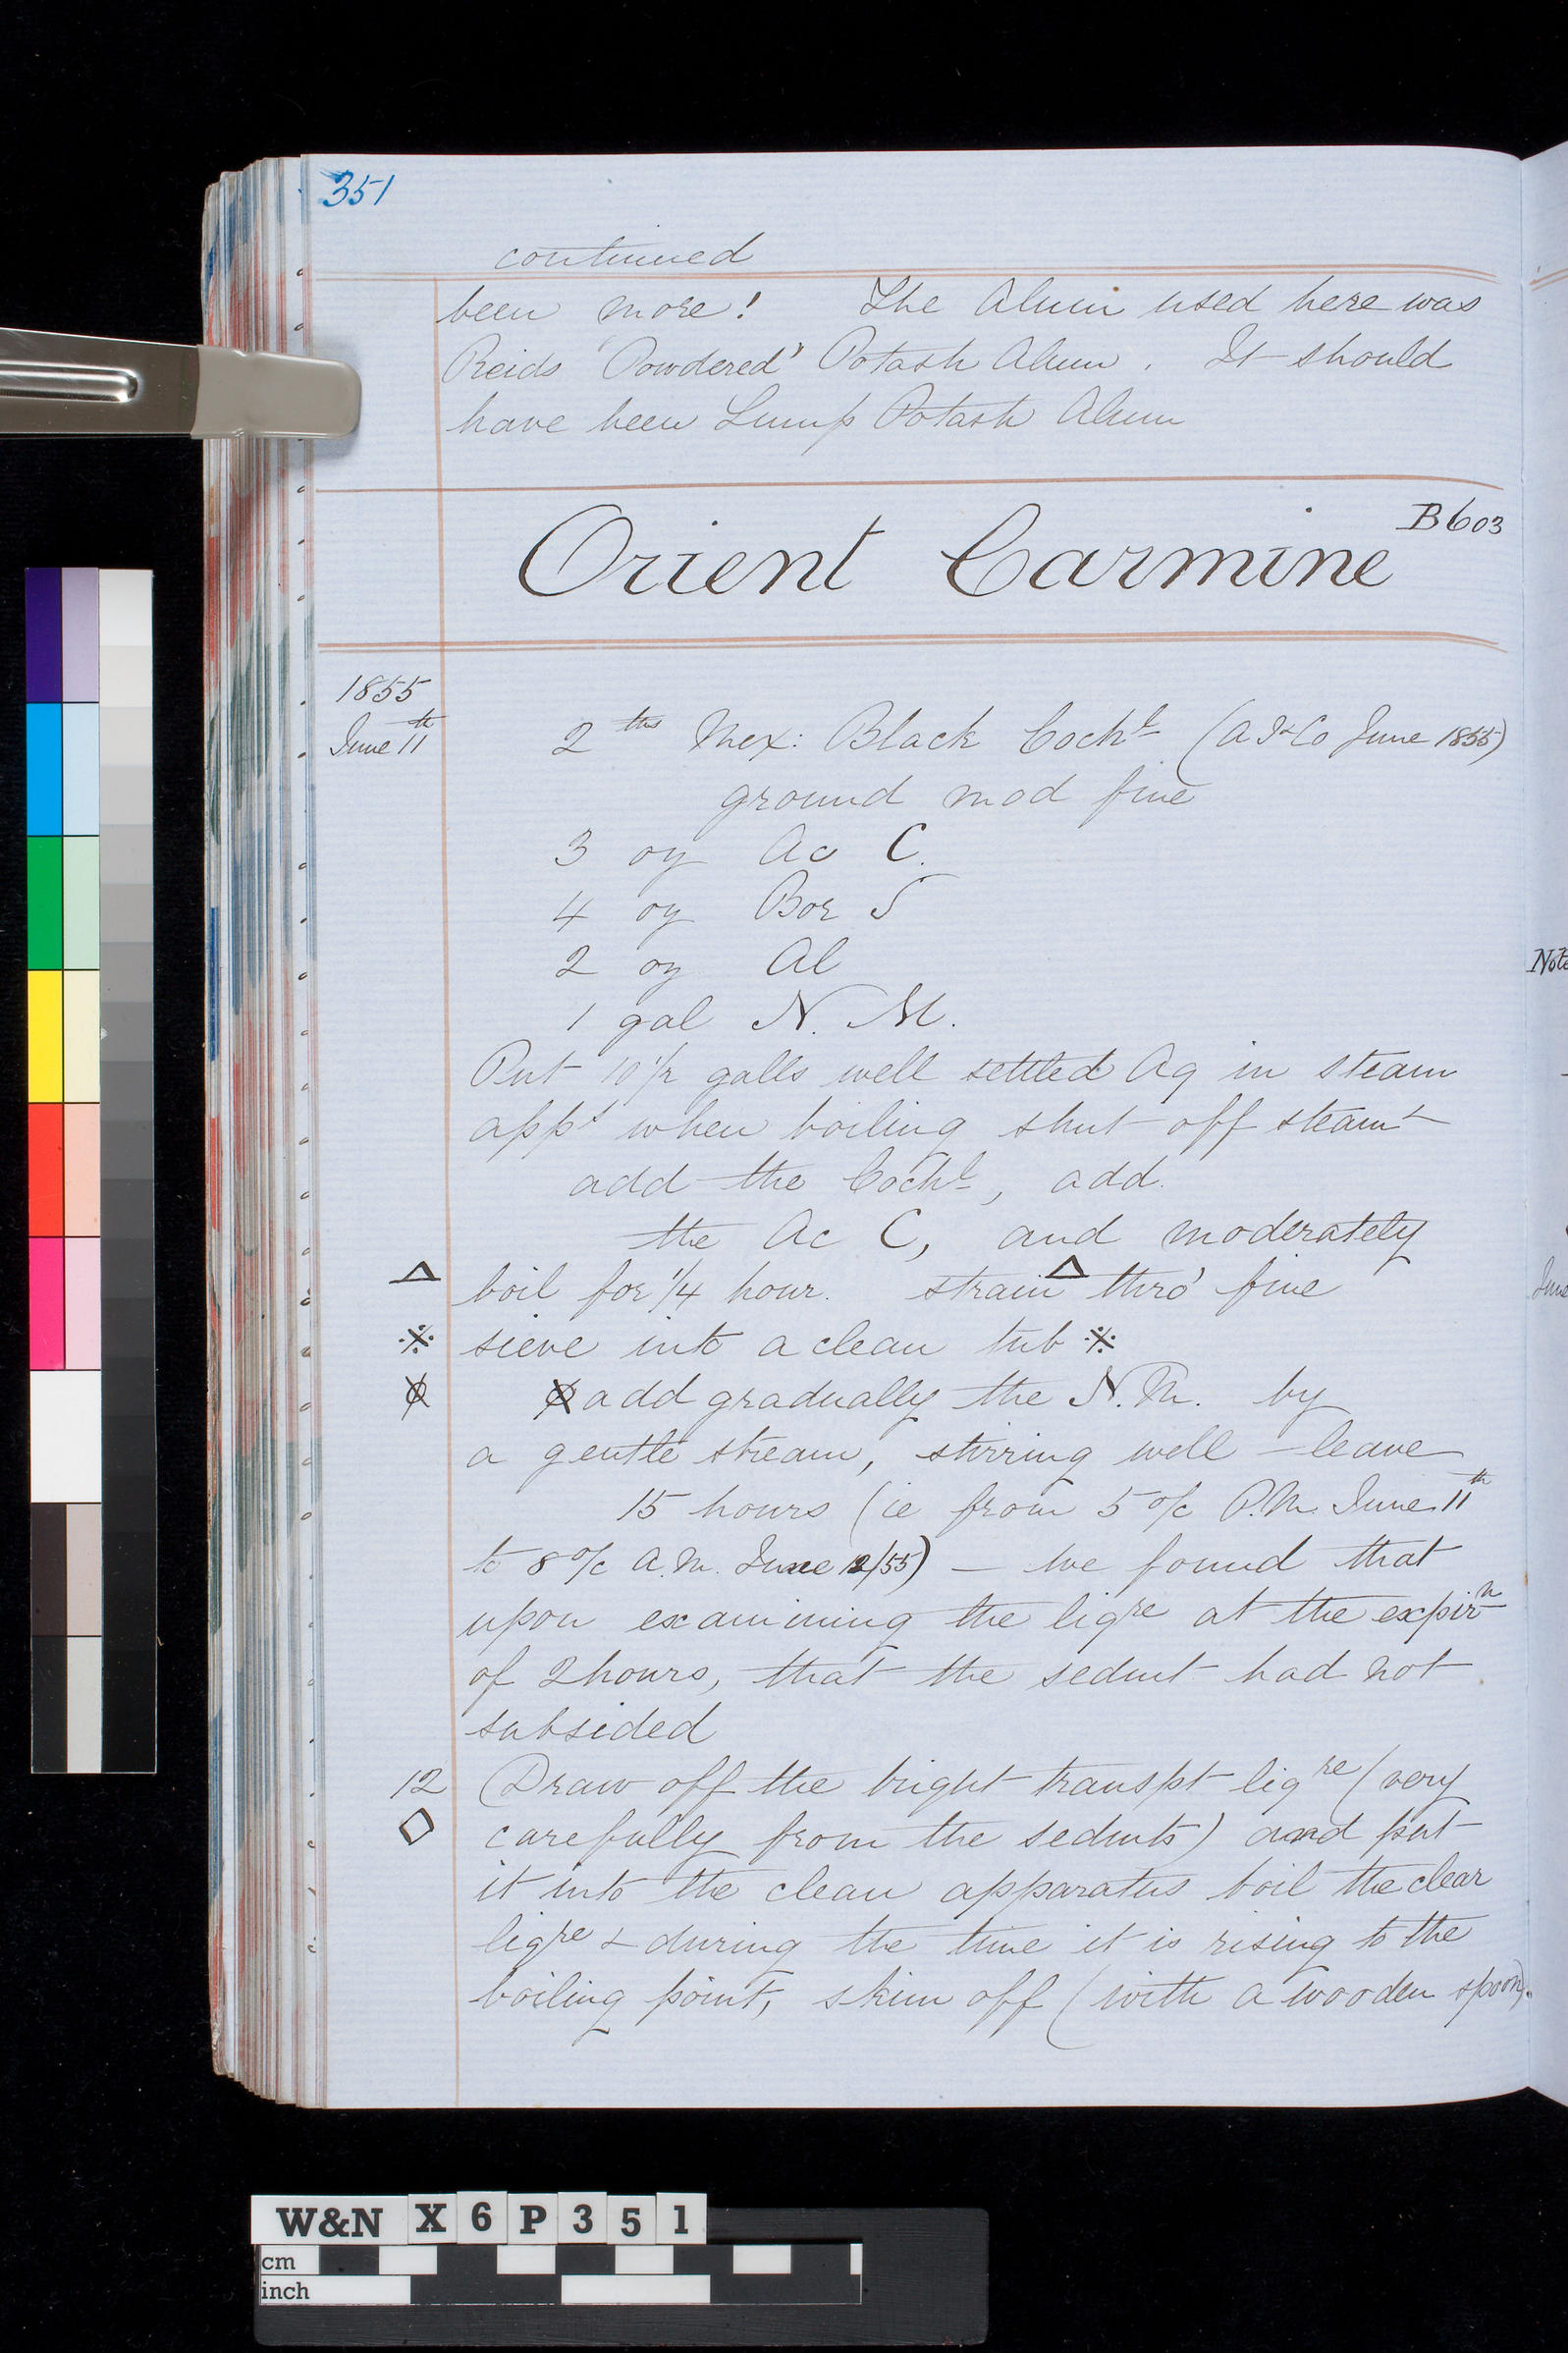 351
continued
been more! The Alum used here was
Reids 'Powdered' Potash Alum. It should
have been Lump Potash Alum
B603
Orient Carmine
1855
June 11th
2 ths Mex: Black Cochl (A F & Co June 1855)
ground mod fine
3 oz Ac C.
4 oz Bor S
2 oz Al
1 gal N. M.
Put 10 1/2 galls well settled Aq in steam
appt when boiling shut off steam &
add the Cochl, add
the Ac C, and moderately
△ boil for 1/4 hour. strain △ thro' fine
※ sieve into a clean tub ※
add gradually the N. M. by
a gentle stream, stirring well – leave
15 hours (ie from 5 o/c P.M. June 11th
to 8 o/c A.M. June 12/55) — we found that
upon examining the liqre at the expirn
of 2 hours, that the sedmt had not
subsided
12 Draw off the bright transpt liqre (very
◇ carefully from the sedmts) and put
it into the clean apparatus boil the clear
liqre & during the time it is rising to the
boiling point, skim off (with a wooden spoon).
Note
June
W&N X6P351
cm
inch